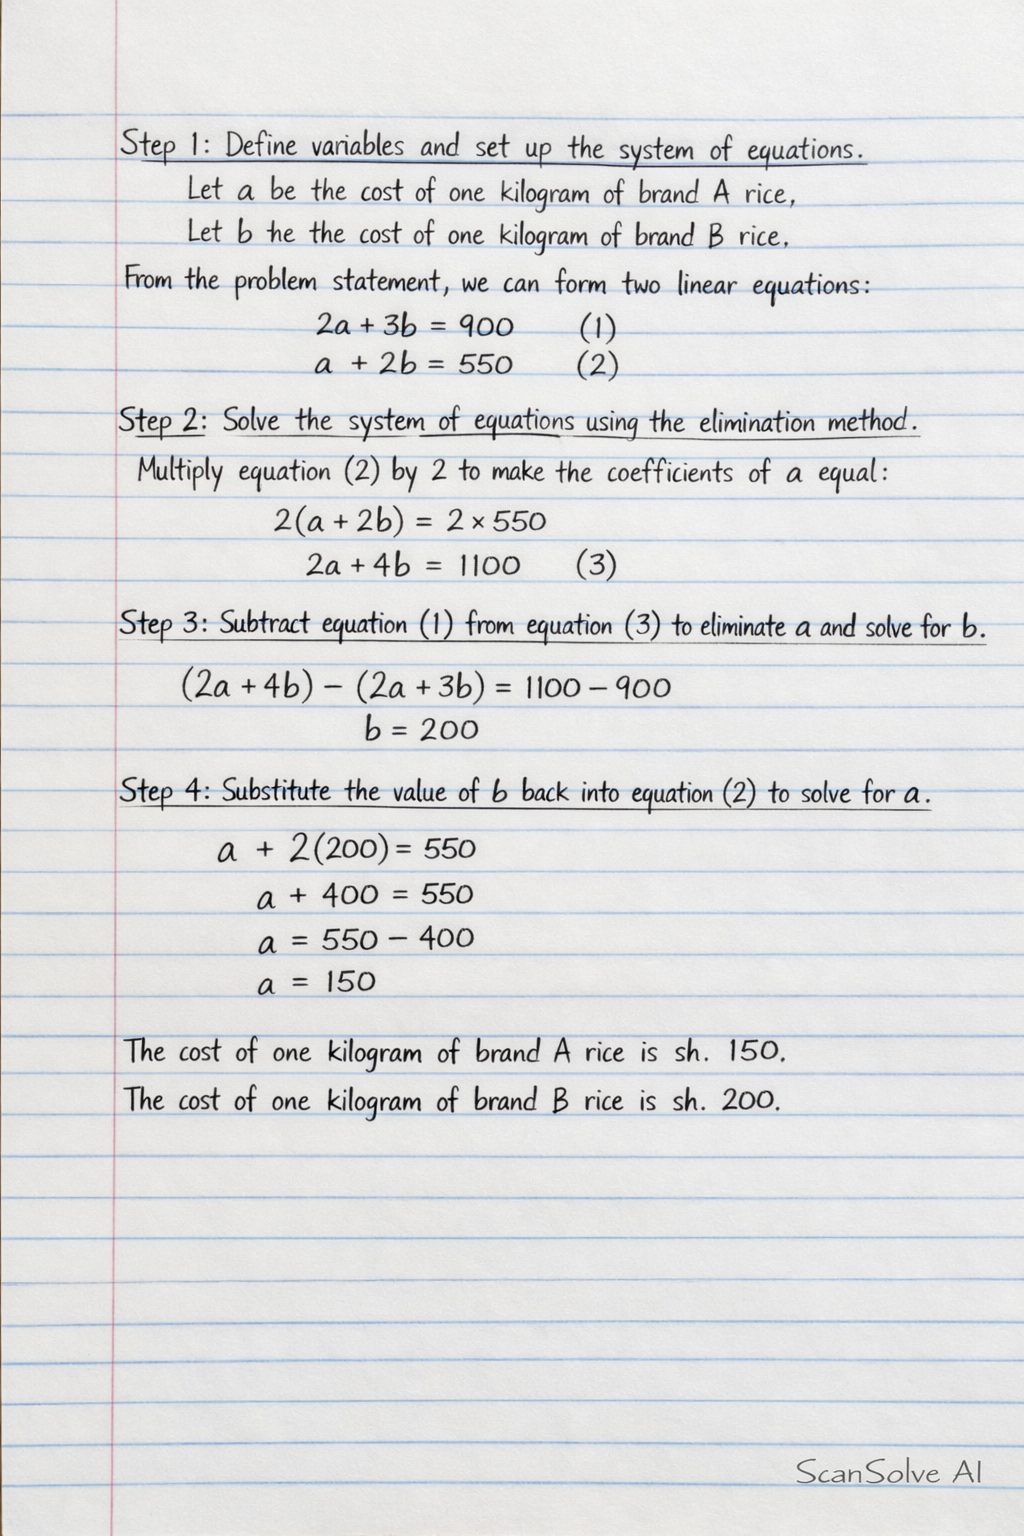 Step 1: Define variables and set up the system of equations.
Let a be the cost of one kilogram of brand A rice,
Let b he the cost of one kilogram of brand B rice.
From the problem statement, we can form two linear equations:
2a + 3b = 900 (1)
a + 2b = 550 (2)
Step 2: Solve the system of equations using the elimination method.
Multiply equation (2) by 2 to make the coefficients of a equal:
2(a + 2b) = 2 × 550
2a + 4b = 1100 (3)
Step 3: Subtract equation (1) from equation (3) to eliminate a and solve for b.
(2a + 4b) − (2a + 3b) = 1100 − 900
b = 200
Step 4: Substitute the value of b back into equation (2) to solve for a.
a + 2(200) = 550
a + 400 = 550
a = 550 − 400
a = 150
The cost of one kilogram of brand A rice is sh. 150.
The cost of one kilogram of brand B rice is sh. 200.
ScanSolve AI